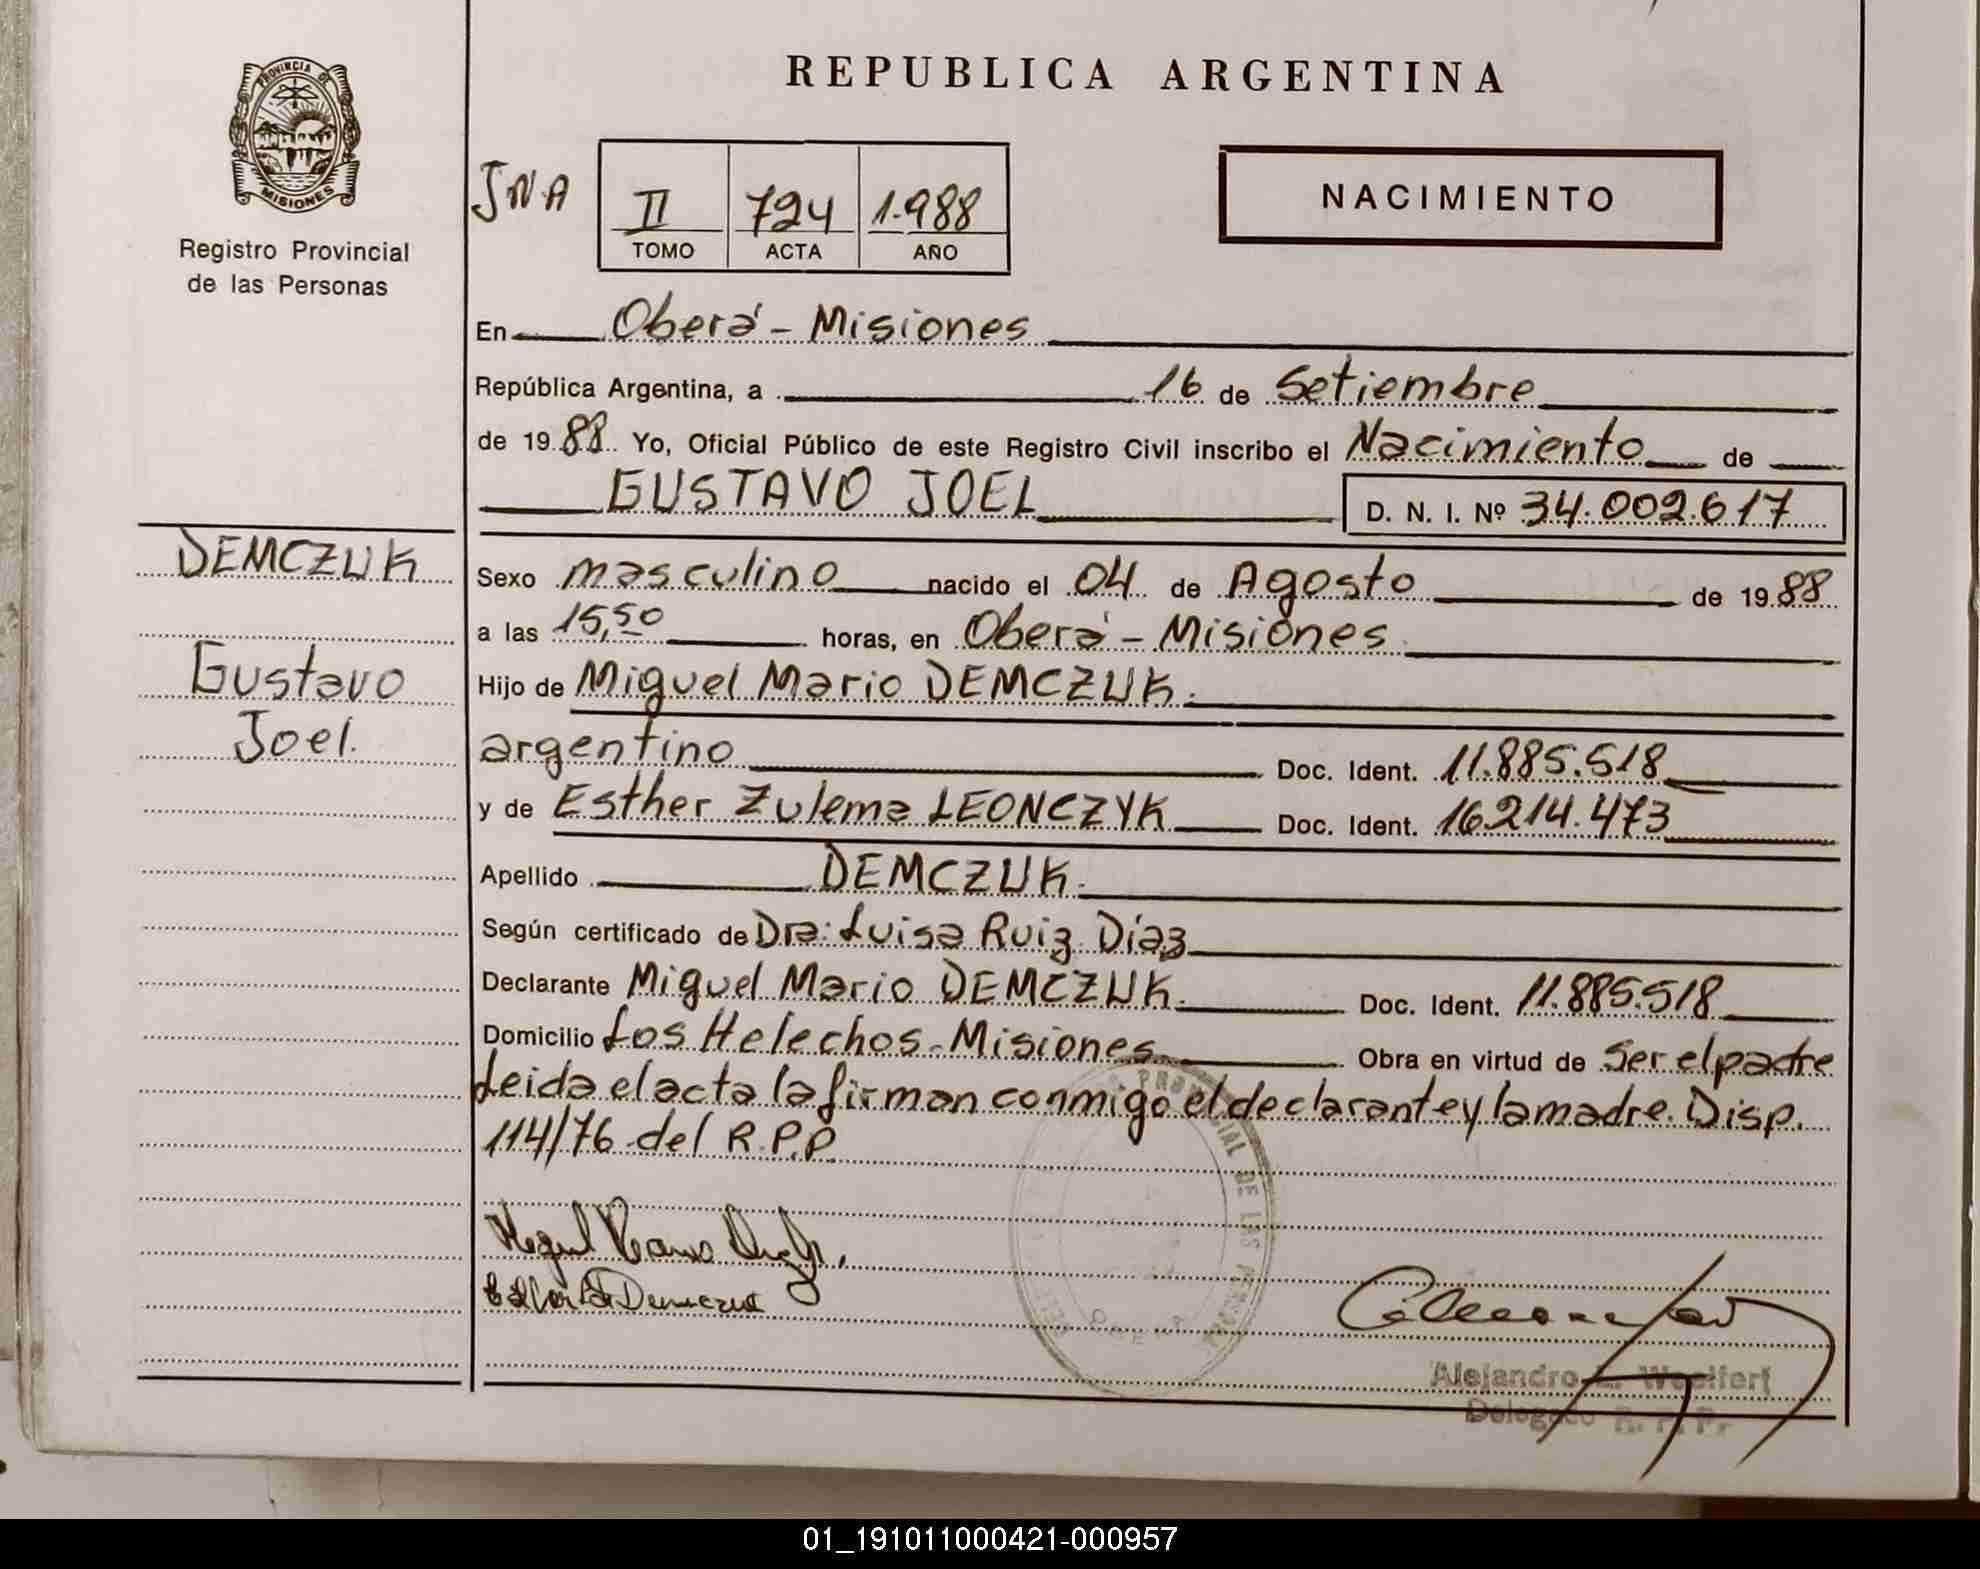 REPUBLICA ARGENTINA
PROVINCIA DE
MISIONES
Registro Provincial
de las Personas
JNA
II 724 1.988
TOMO ACTA AÑO
NACIMIENTO
En Oberá - Misiones
República Argentina, a 16 de Setiembre
de 19 88 Yo, Oficial Público de este Registro Civil inscribo el Nacimiento de
GUSTAVO JOEL D. N. I. Nº 34.002.617
DEMCZUK
Gustavo
Joel.
Sexo masculino nacido el 04 de Agosto de 19 88
a las 15,50 horas, en Oberá - Misiones
Hijo de Miguel Mario DEMCZUK.
argentino Doc. Ident. 11.885.518
y de Esther Zulema LEONCZYK Doc. Ident. 16.214.473
Apellido DEMCZUK.
Según certificado de Dra: Luisa Ruiz Díaz
Declarante Miguel Mario DEMCZUK. Doc. Ident. 11.885.518
Domicilio Los Helechos - Misiones Obra en virtud de Ser el padre
Leida el acta la firman conmigo el declarante y la madre. Disp.
114/76 del R.P.P.
Alejandro L. Woelfert
Delegado R. P. P.
01_191011000421-000957